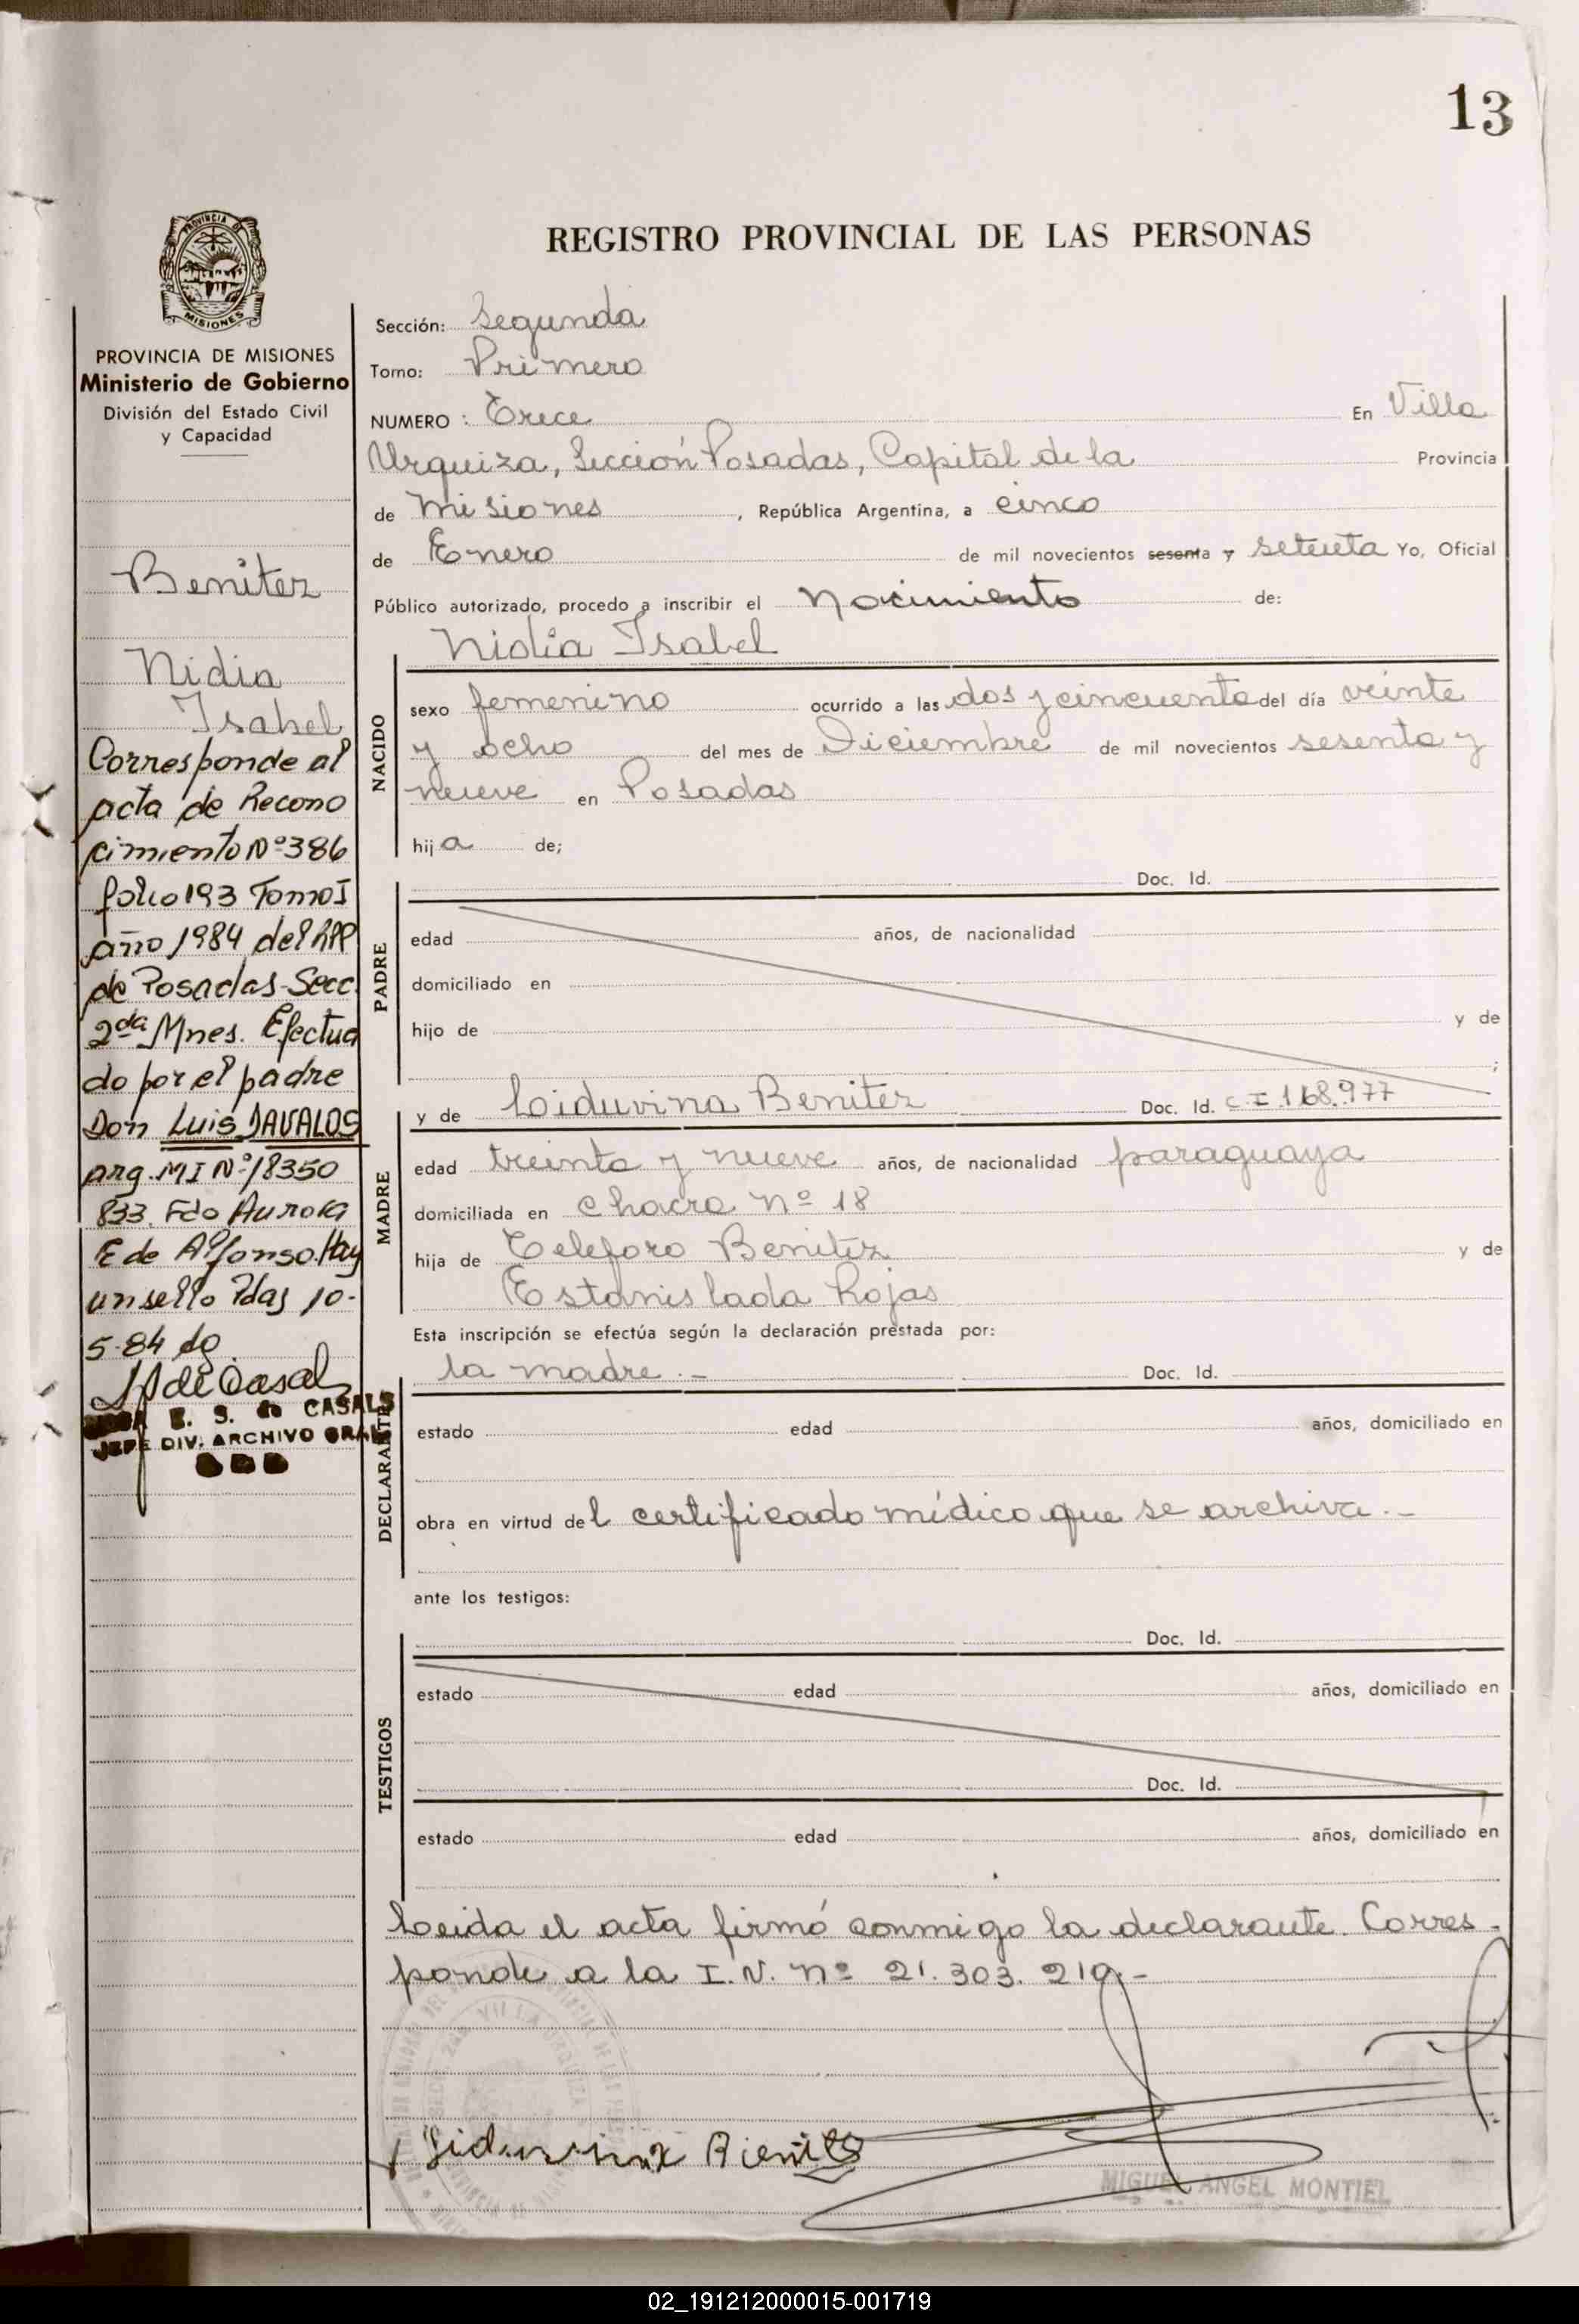 13
PROVINCIA DE
MISIONES
REGISTRO PROVINCIAL DE LAS PERSONAS
PROVINCIA DE MISIONES
Ministerio de Gobierno
División del Estado Civil
y Capacidad
Benitez
Nidia
Isabel
Corresponde al
acta de Recono
cimiento Nº 386
folio 193 Tomo I
año 1984 del RPP
de Posadas-Secc.
2da Mnes. Efectua
do por el padre
Don Luis DAVALOS
arg. MI Nº 18350
833. Fdo Aurora
E de Alfonso. Hay
un sello Pdas 10-
5-84 dg
E. S. de CASALS
JEFE DIV. ARCHIVO GRAL
Sección: Segunda
Tomo: Primero
NUMERO : Trece En Villa
Urquiza, Sección Posadas, Capital de la Provincia
de Misiones, República Argentina, a cinco
de Enero de mil novecientos sesenta y setenta Yo, Oficial
Público autorizado, procedo a inscribir el Nacimiento de:
Nidia Isabel
NACIDO
sexo femenino ocurrido a las dos y cincuenta del día veinte
y ocho del mes de Diciembre de mil novecientos sesenta y
nueve en Posadas
hija de;
Doc. Id.
PADRE
edad años, de nacionalidad
domiciliado en
hijo de y de
;
y de Liduvina Benitez Doc. Id. C.I 168.977
MADRE
edad treinta y nueve años, de nacionalidad paraguaya
domiciliada en Chacra Nº 18
hija de Teleforo Benitez y de
Estanislada Rojas
Esta inscripción se efectúa según la declaración prestada por:
la madre.- Doc. Id.
DECLARANTE
estado edad años, domiciliado en
obra en virtud del certificado médico que se archiva.-
ante los testigos:
Doc. Id.
TESTIGOS
estado edad años, domiciliado en
Doc. Id.
estado edad años, domiciliado en
Leida el acta firmó conmigo la declarante. Corres-
ponde a la I.N. Nº 21.303.219.-
Liduvina Benitez
MIGUEL ANGEL MONTIEL
02_191212000015-001719